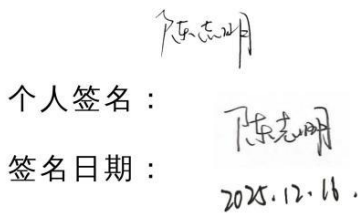 陈志明
个人签名：
陈志明
签名日期：
2025.12.16.